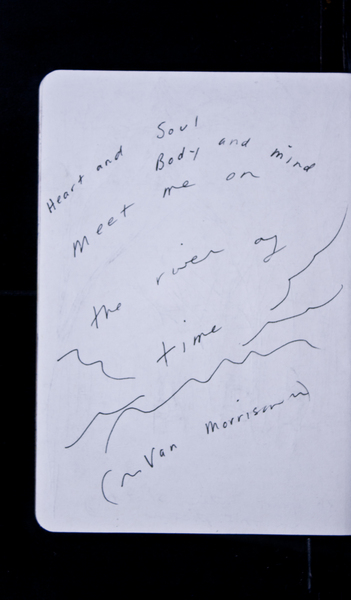 Heart and Soul
Body and mind
Meet me on
the river of
time
(~Van Morrison~)